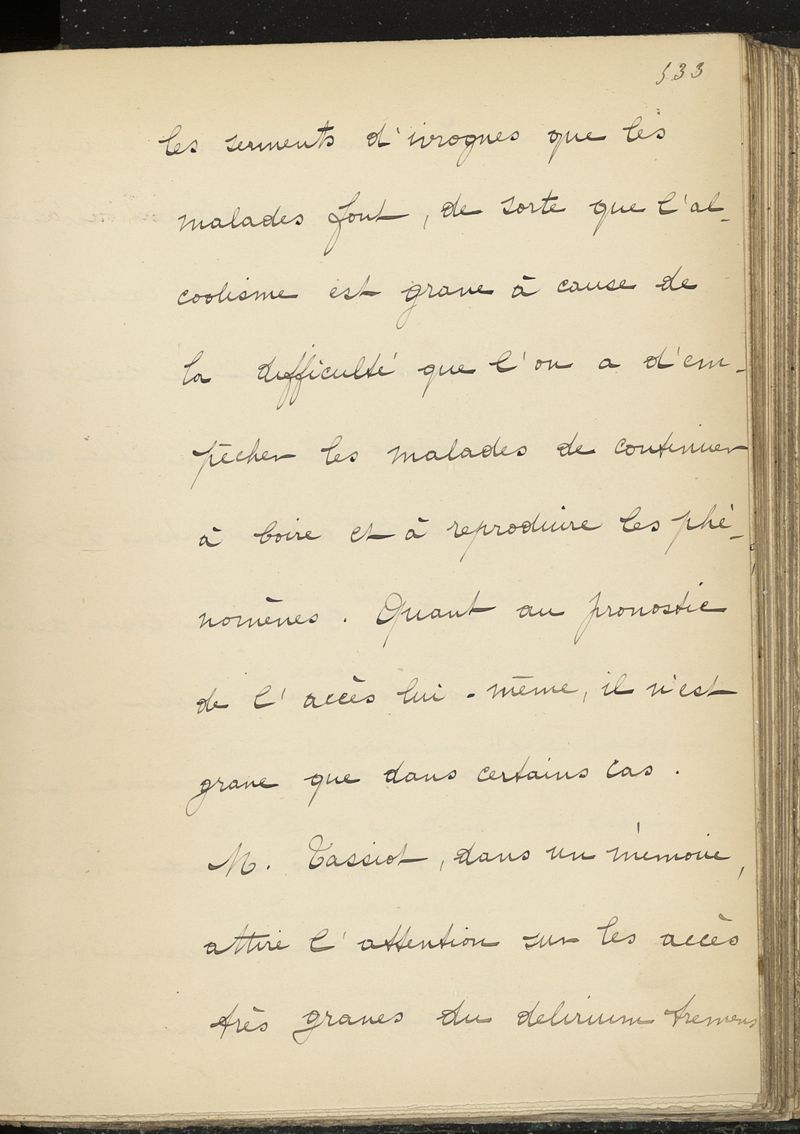 533
les serments d'ivrognes que les
malades font, de sorte que l'al-
coolisme est grave à cause de
la difficulté que l'on a d'em-
pêcher les malades de continuer
à boire et à reproduire les phé-
nomènes. Quant au pronostic
de l'accès lui-même, il n'est
grave que dans certains cas.
M. Tassiot, dans un mémoire,
attire l'attention sur les accès
très graves du delirium tremens